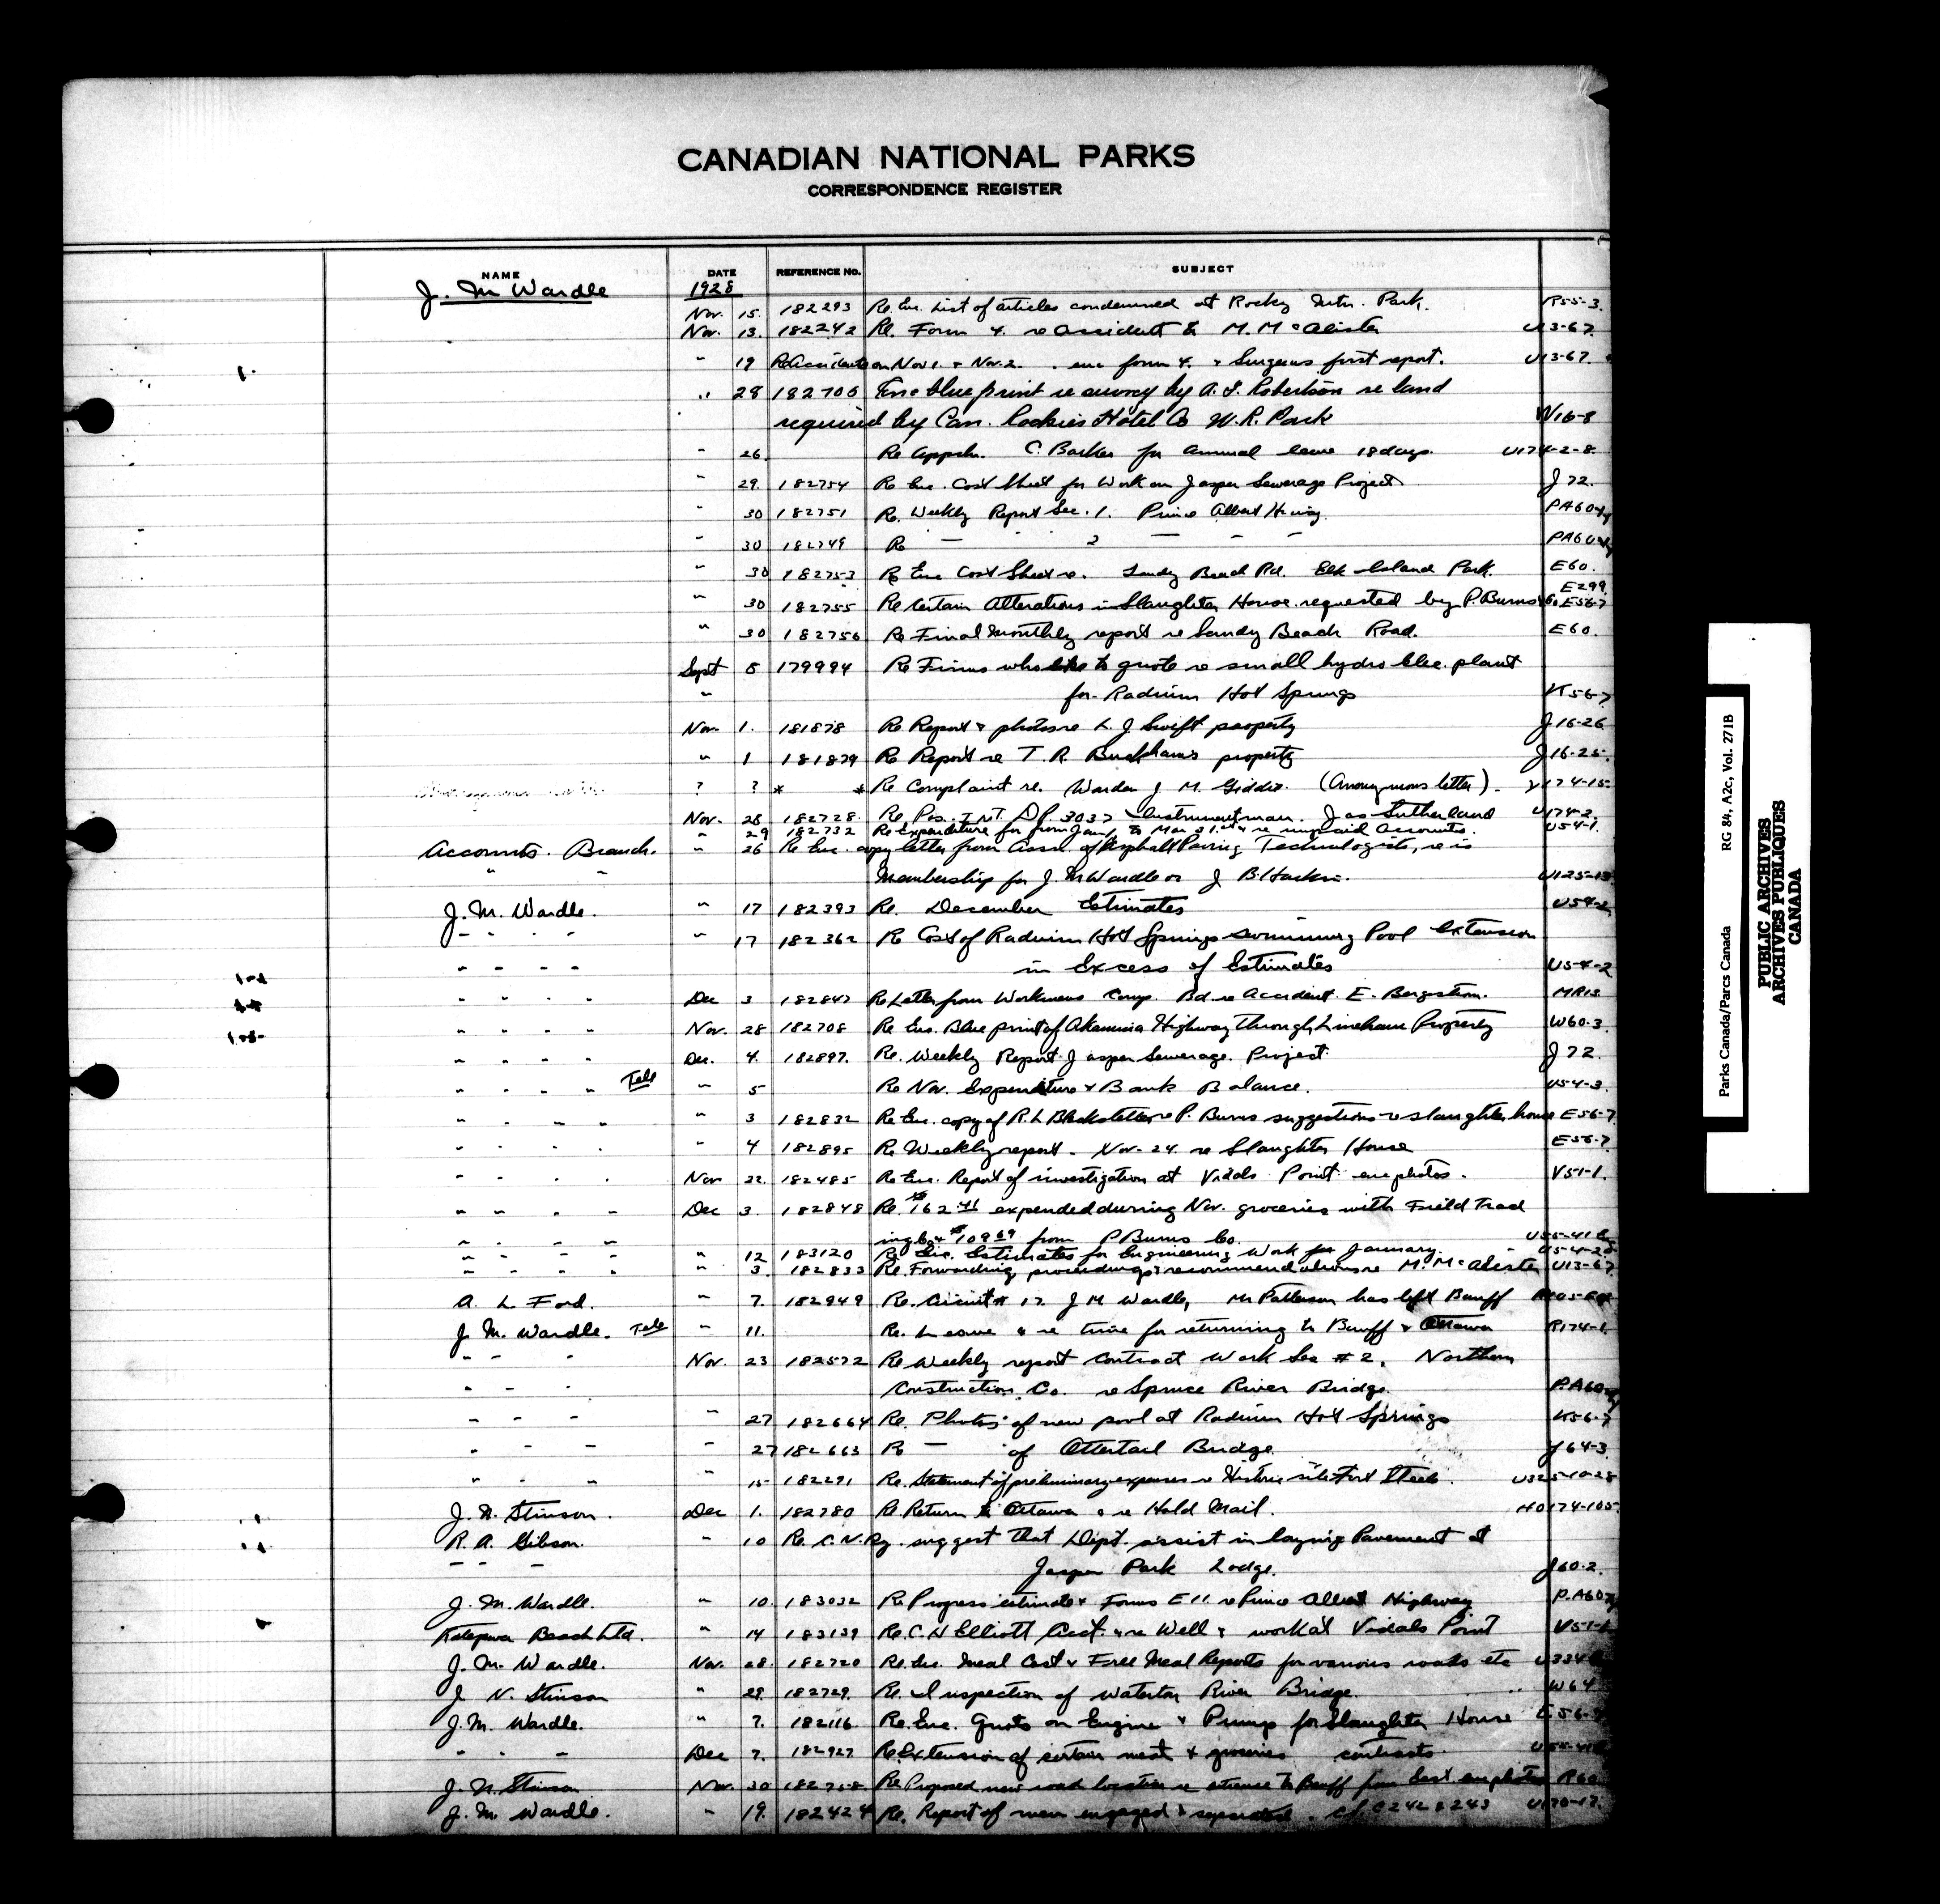 CANADIAN NATIONAL PARKS
CORRESPONDENCE REGISTER
NAME DATE REFERENCE No. SUBJECT
J. M Wardle 1928
Nov. 15. 182293 Re Enc. List of articles condemned at Rocky Mtn. Park. R55-3.
Nov. 13. 182242 Re. Form 4. re accident to M. McAlister U13-67.
" 19 Re Accidents on Nov 1. & Nov 2. . enc form 4. & Surgeons first report. U13-67.
" 28 182706 Enc blue print re survey by A. S. Robertson re land
required by Can. Rockies Hotel Co W.R. Park W16-8
" 26. Re Appln. C. Barker for annual leave 18 days. U174-2-8.
" 29. 182754 Re Enc. Cost Sheet for Work on Jasper Sewerage Project J 72.
" 30 182751 Re. Weekly Report Sec. 1. Prince Albert Hiway. PA60
" 30 182749 Re " " 2 " " " PA60
" 30 182753 Re Enc Cost Sheet re. Sandy Beach Rd. Elk Island Park. E60.
E299.
" 30 182755 Re Certain Alterations in Slaughter House requested by P. Burns & Co. E56-7
" 30 182756 Re Final Monthly report re Sandy Beach Road. E60.
Sept 5 179994 Re Firms who like to quote re small hydro elec. plant
" for Radium Hot Springs K56-7
Nov. 1. 181878 Re Report & photos re L. J. Swift property J16-26
" 1 181879 Re Report re T. R. Buckhams property J16-25.
? ? * * Re Complaint re. Warden J. M. Giddie. (Anonymous letter). 174-15.
Nov. 28 182728. Re Pos. INT. DP. 3037 Instrumentman. Jas Sutherland U174-2.
" 29 182732 Re Expenditure for from Jan 1 to Mar 31st & re unpaid accounts. U54-1.
Accounts. Branch. " 26 Re Enc. copy letter from Assn. of Asphalt Paving Technologists, re is
" " Membership for J. M Wardle or J B Harkin. U125-13
J. M. Wardle. " 17 182393 Re. December Estimates U54-2
" " " " " 17 182362 Re Cost of Radium Hot Springs swimming Pool extension
" " " " in Excess of Estimates U54-2
" " " " Dec 3 182847 Re Letter from Workmens Comp. Bd. re Accident. E. Bergstrom. MR13
" " " " Nov. 28 182708 Re Enc. Blue print of Akamina Highway through Lineham Property W60-3.
" " " " Dec. 4. 182897. Re. Weekly Report Jasper Sewerage. Project J 72.
" " " " Tele " 5 Re Nov. Expenditure & Bank Balance. U54-3.
" " " " " 3 182832 Re Enc. copy of R. L Blacks letter re P. Burns suggestions re slaughter house E56-7.
" " " " " 4 182895 Re Weekly report - Nov-24. re Slaughter House E56-7
" " " " Nov 22. 182485 Re Enc. Report of investigation at Vidals Point enc photos. V51-1.
" " " " Dec 3. 182848 Re. $162.41 expended during Nov. groceries with Field Trad
" " " " ing Co & $109.69 from P Burns Co. U55-41
" " " " " 12 183120 Re Enc. Estimates for Engineering Work for January. U54-2
" " " " " 3. 182833 Re. Forwarding proceedings & recommendations re M. McAlister U13-67
A. L Ford. " 7. 182949 Re. Circuit # 17. J M Wardle, Mr Patterson has left Banff
J. M. Wardle. Tele " 11. Re. Leave & re time for returning to Banff & Ottawa R174-1.
" " " Nov. 23 182572 Re Weekly report Contract Work Sec #2, Northern
" " " Construction Co. re Spruce River Bridge. P.A60
" " " " 27 182664 Re. Photos of new pool at Radium Hot Springs K56-7
" " " " 27 182663 Re " of Ottertail Bridge. Y64-3
" " " " 15 182291 Re. Statement of preliminary expenses re Historic site Fort Steele. U325-10-28
J. N. Stinson. Dec 1. 182780 Re Return to Ottawa & re Hold Mail. HO174-105.
R. A. Gibson. " 10 Re. C.N.Ry. suggest that Dept. assist in laying Pavement at
" " " Jasper Park Lodge. J60-2.
J. M. Wardle. " 10. 183032 Re Progress estimate & Forms E11 re Prince Albert Highway P.A60
Katepwa Beach Ltd. " 14 183139 Re. C. H Elliott Acct. & re Well & work at Vidals Point V51-1
J. M. Wardle. Nov. 28. 182720 Re. Enc. Meal Cost & Free Meal Reports for various roads etc U334
J. N. Stinson " 29. 182729. Re. Inspection of Waterton River Bridge. W64
J. M. Wardle. " 7. 182116. Re. Enc. Quots on Engine & Pump for Slaughter House E56-7
" " " Dec 7. 182927 Re Extension of certain meat & groceries contracts. U55-41
J. N. Stinson Nov. 30 182758. Re Proposed new road location re entrance to Banff from East. enc photos R60
J. M. Wardle. " 19. 182424 Re. Report of men engaged & separated. C242 & 243 U170-17.
Parks Canada/Parcs Canada RG 84, A2c, Vol. 271B
PUBLIC ARCHIVES
ARCHIVES PUBLIQUES
CANADA